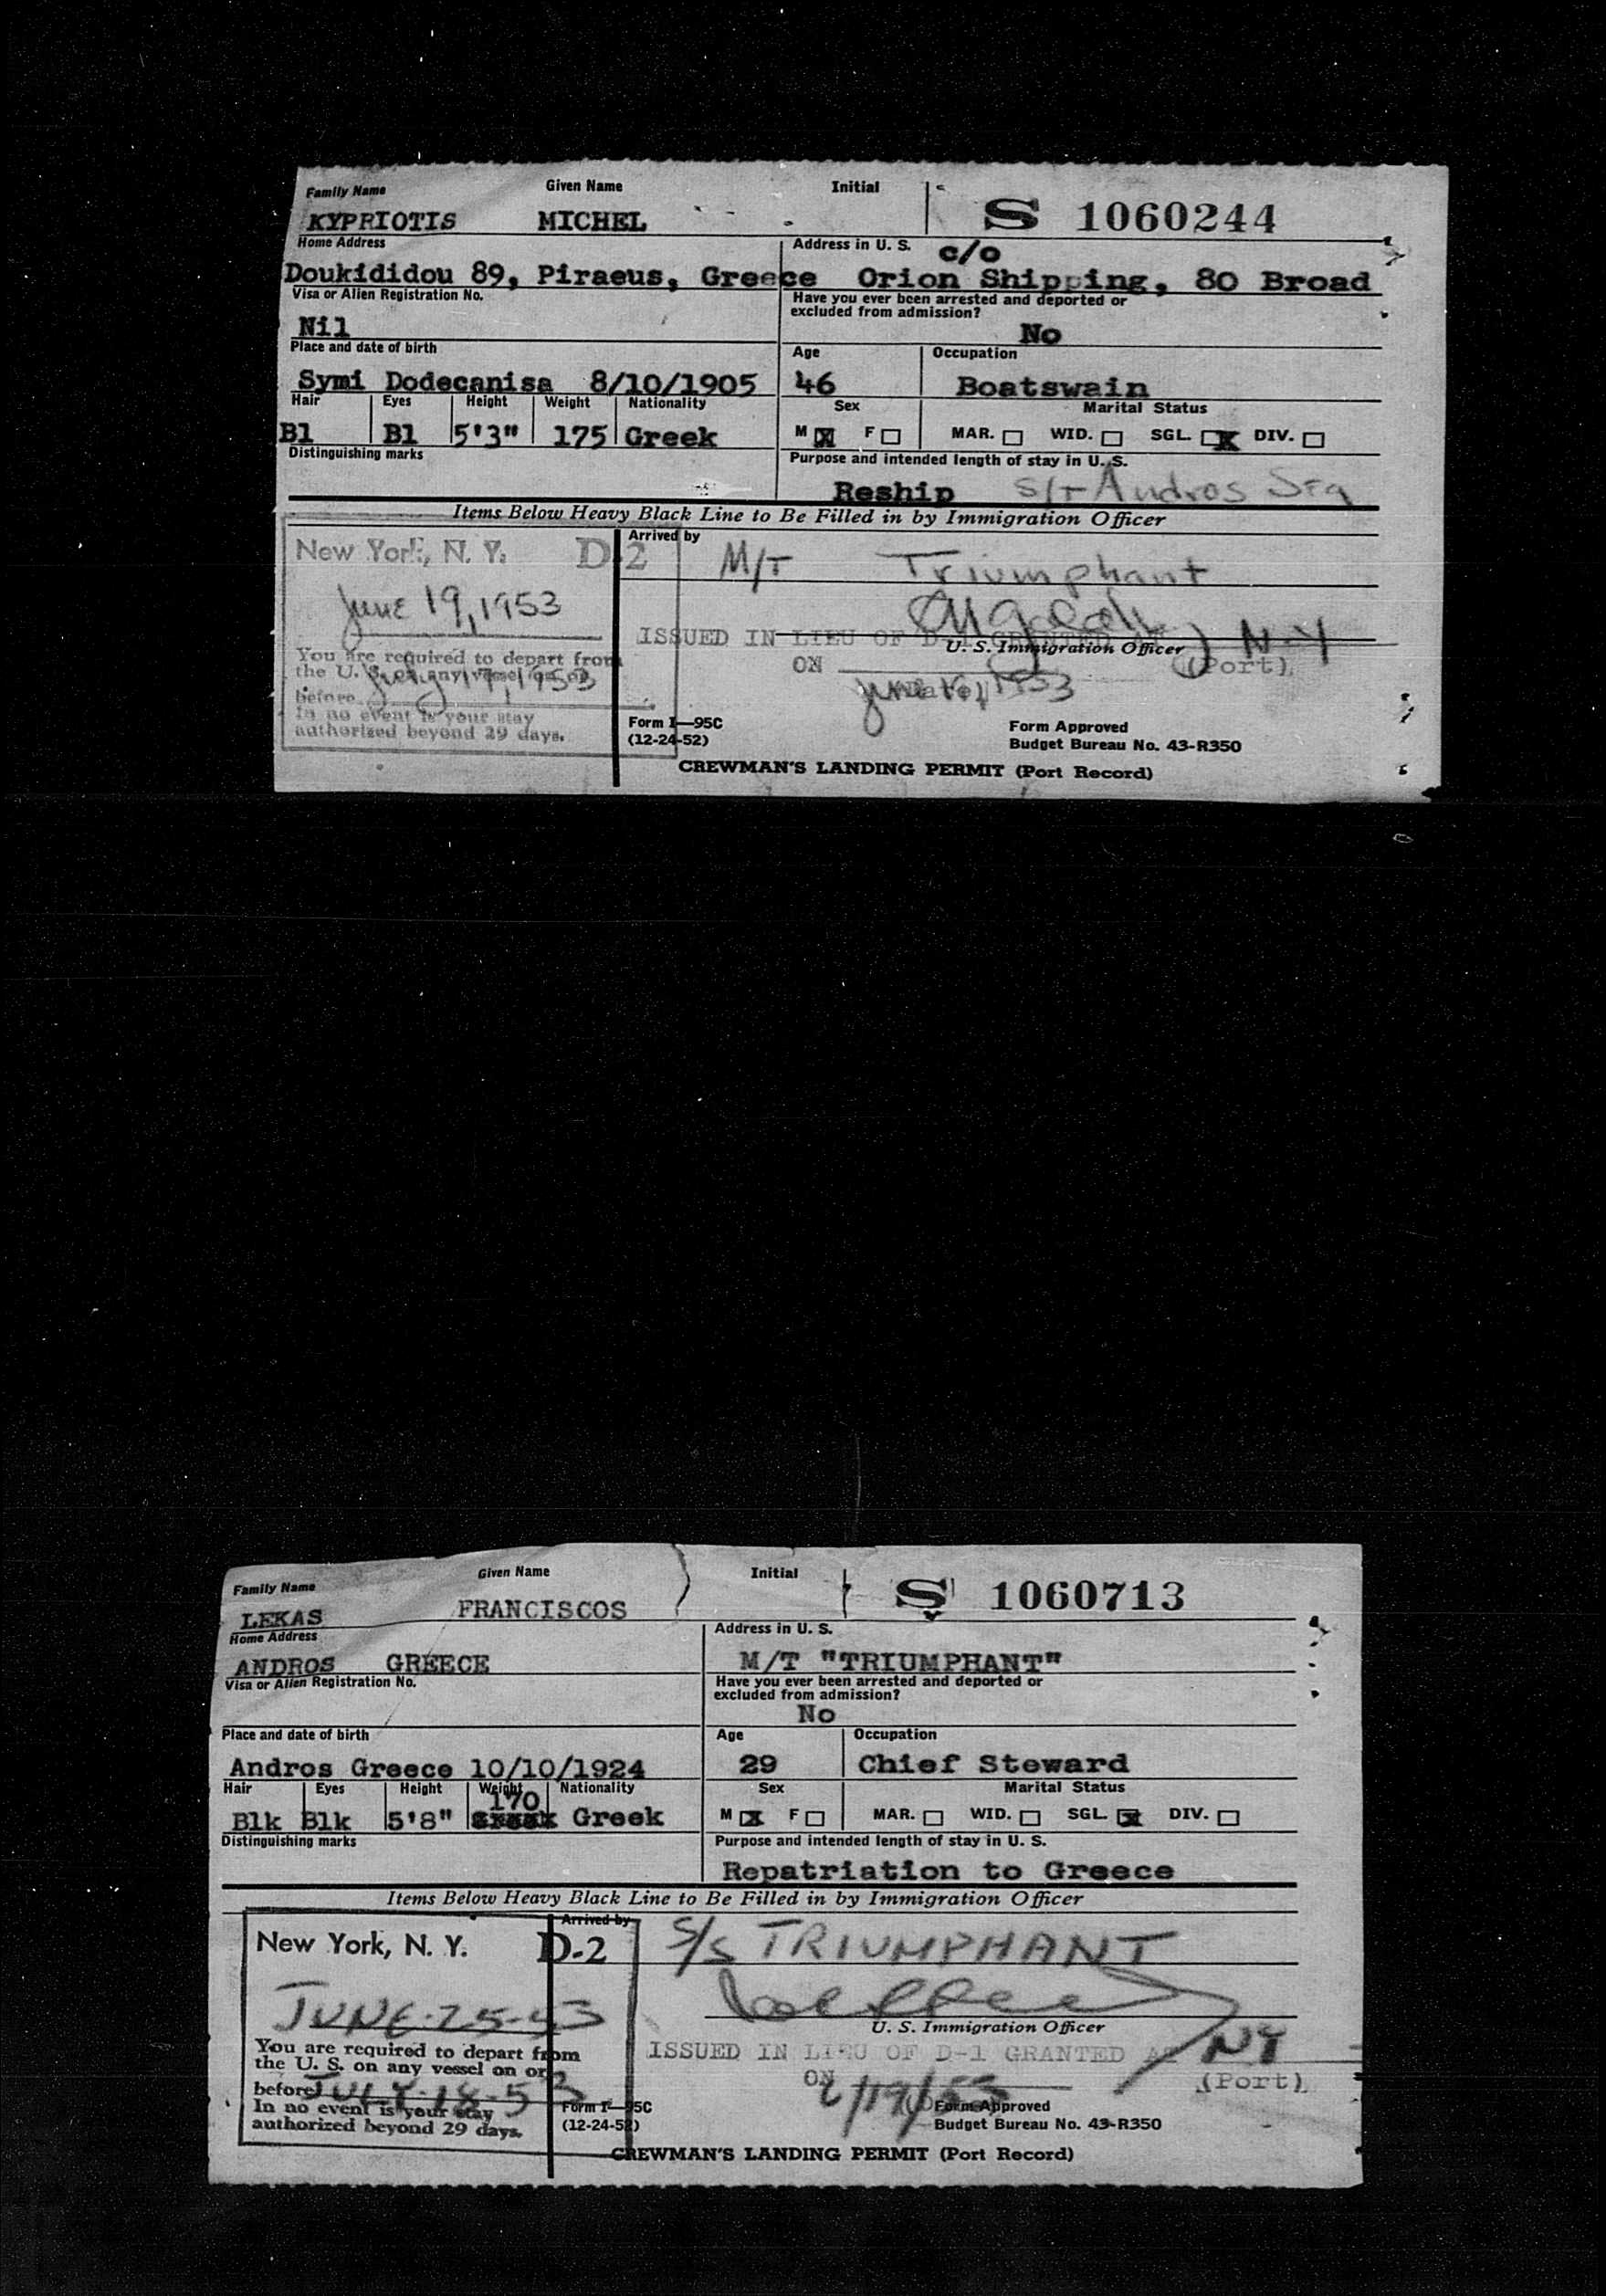 Family Name Given Name Initial
KYPRIOTIS MICHEL S 1060244
Home Address Address in U. S. c/o
Doukididou 89, Piraeus, Greece Orion Shipping, 80 Broad
Visa or Alien Registration No. Have you ever been arrested and deported or
excluded from admission?
Nil No
Place and date of birth Age Occupation
Symi Dodecanisa 8/10/1905 46 Boatswain
Hair Eyes Height Weight Nationality Sex Marital Status
Bl Bl 5'3" 175 Greek M X F MAR. WID. SGL. X DIV.
Distinguishing marks Purpose and intended length of stay in U. S.
Reship S/T Andros
Items Below Heavy Black Line to Be Filled in by Immigration Officer
New York, N. Y. D-2 Arrived by M/T Triumphant
June 19, 1953
ISSUED IN LIEU OF D-1 GRANTED AT N-Y
U. S. Immigration Officer (Port)
You are required to depart from
the U. S. on any vessel on or
before July 17, 1953
ON June 1953
In no event is your stay
authorized beyond 29 days.
Form I—95C Form Approved
(12-24-52) Budget Bureau No. 43-R350
CREWMAN'S LANDING PERMIT (Port Record)
Family Name Given Name Initial
LEKAS FRANCISCOS S 1060713
Home Address Address in U. S.
ANDROS GREECE M/T "TRIUMPHANT"
Visa or Alien Registration No. Have you ever been arrested and deported or
excluded from admission?
No
Place and date of birth Age Occupation
Andros Greece 10/10/1924 29 Chief Steward
Hair Eyes Height Weight Nationality Sex Marital Status
170
Blk Blk 5'8" Greek Greek M X F MAR. WID. SGL. X DIV.
Distinguishing marks Purpose and intended length of stay in U. S.
Repatriation to Greece
Items Below Heavy Black Line to Be Filled in by Immigration Officer
New York, N. Y. D-2 Arrived by S/S TRIUMPHANT
JUNE-25-53
U. S. Immigration Officer
You are required to depart from
the U. S. on any vessel on or
before JULY-18-53
ISSUED IN LIEU OF D-1 GRANTED AT NY
ON 6/19/53 (Port)
In no event is your stay
authorized beyond 29 days.
Form I—95C Form Approved
(12-24-52) Budget Bureau No. 43-R350
CREWMAN'S LANDING PERMIT (Port Record)